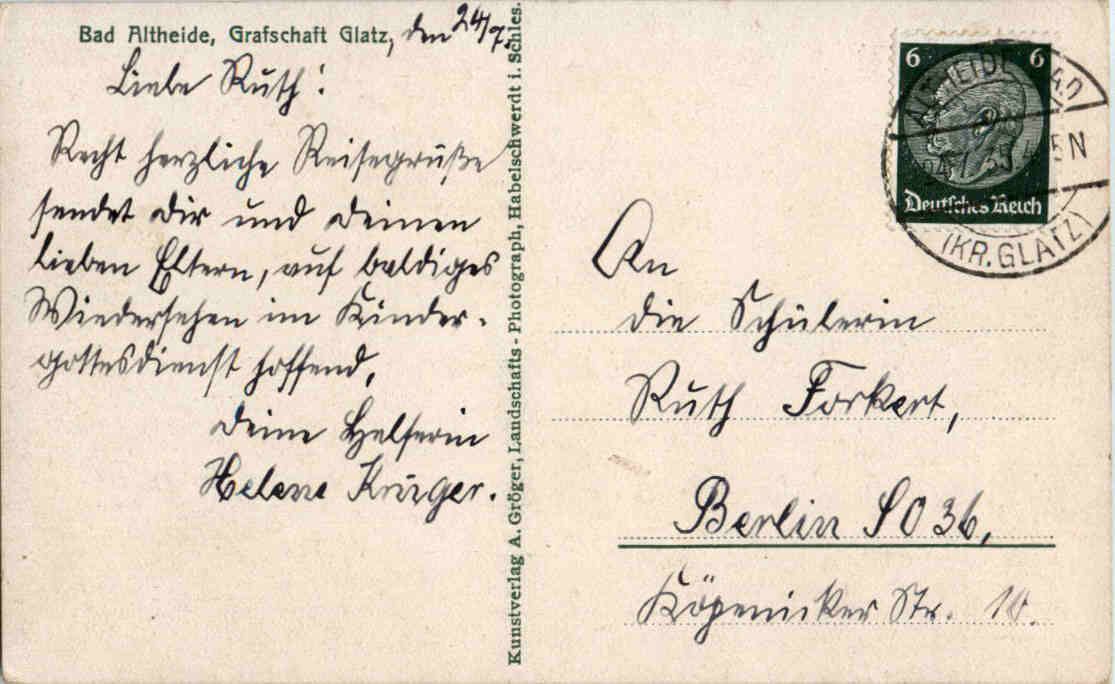 Bad Altheide, Grafschaft Glatz, den 24/7.
Liebe Ruth!
Recht herzliche Reisegrüße
sendet dir und deinen
lieben Eltern, auf baldiges
Wiedersehen im Kinder-
gottesdienst hoffend,
deine Helferin
Helene Krüger.
Kunstverlag A. Gröger, Landschafts-Photograph, Habelschwerdt i. Schles.
6 6
Deutsches Reich
ALTHEIDE BAD
5N
(KR. GLATZ)
An
die Schülerin
Ruth Forkert,
Berlin SO 36,
Köpenicker Str. 10.